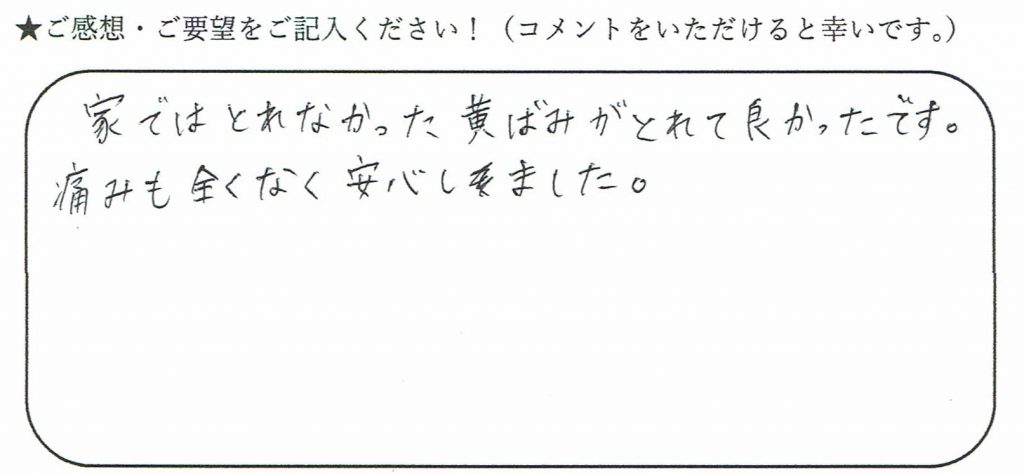 ★ご感想・ご要望をご記入ください！（コメントをいただけると幸いです。）
家ではとれなかった黄ばみがとれて良かったです。
痛みも全くなく安心しきました。